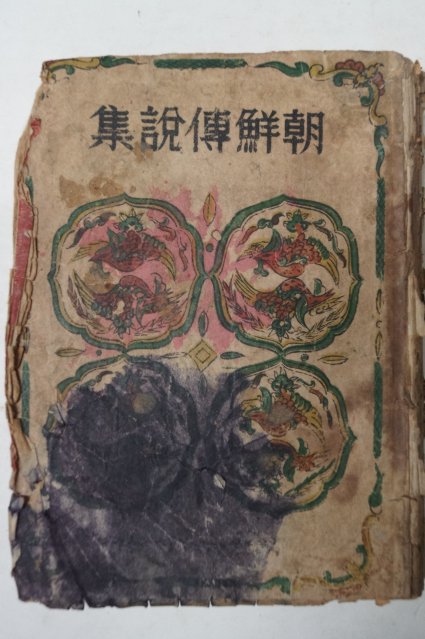 朝鮮傳說集